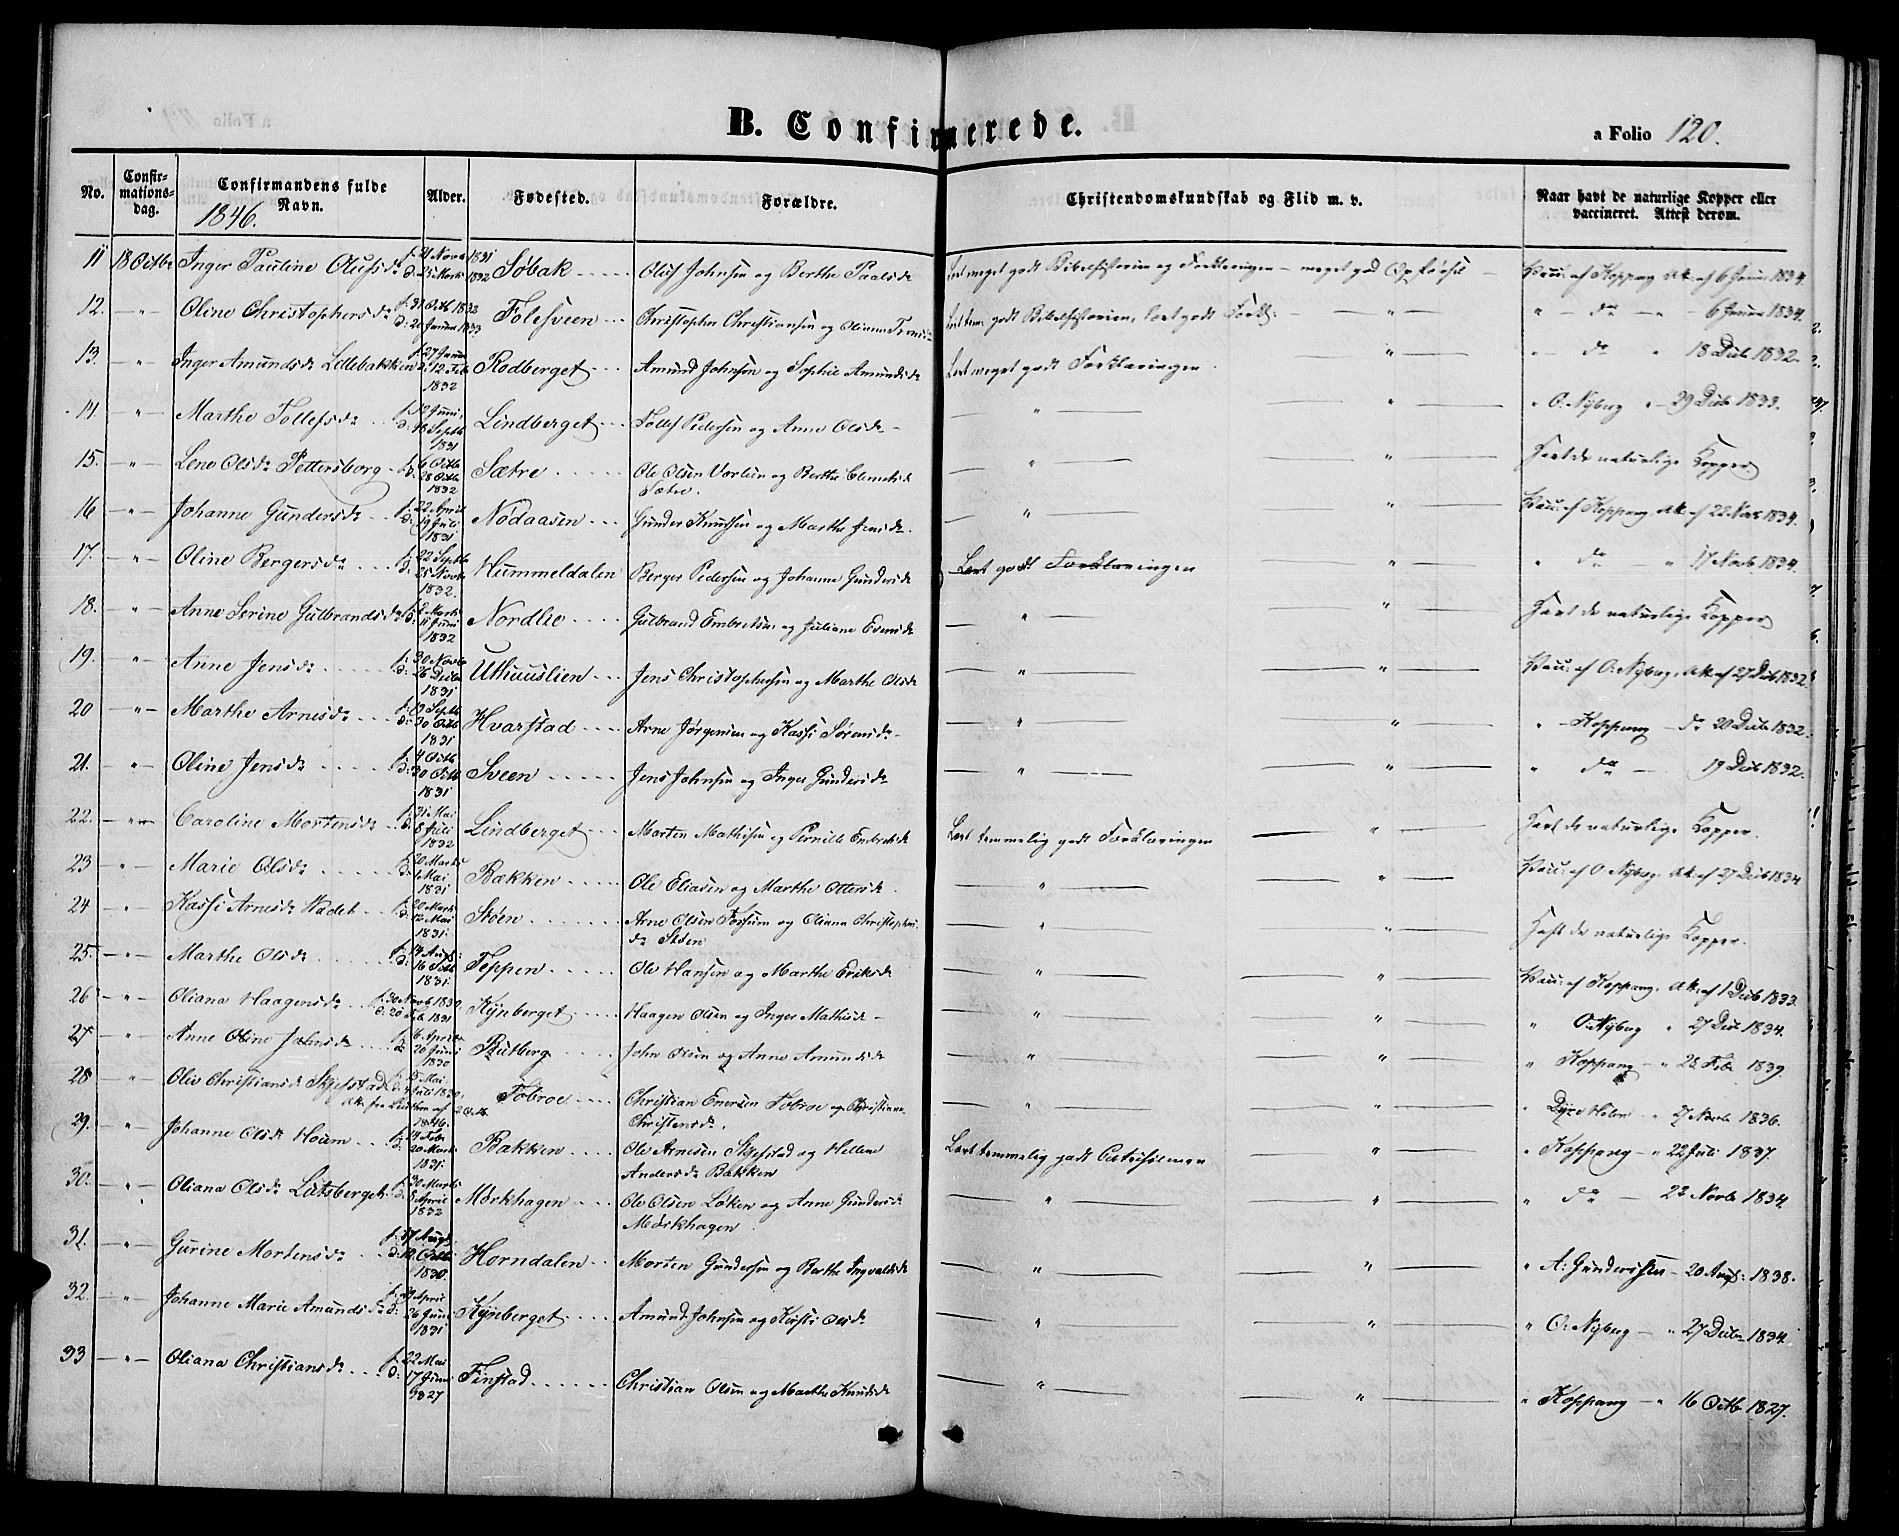 B. Confirmerede.
a Folio 120.
No.
Confirmationsdag.
Confirmandens fulde Navn.
1846.
Alder.
Fødested.
Forældre.
Christendomskundskab og Flid m. v.
Naar havt de naturlige Kopper eller vaccineret. Attest derom.
11 18 Octbr Inger Pauline Olufsdr f. 21 Novbr 1831 d. 25 Marts 1832 Søbak Oluf Johnsen og Berthe Paalsdr Lært meget godt Bibelhistorien og Forklaringen - meget god Opførsel Vacc. af Koppang Att. af 6 Januar 1834.
12. - " - Oline Christophersdr f. 31 Octb 1832 d. 20 Januar 1833 Folesveen Christopher Christiansen og Oliana Lært tem: godt Bibelhistorien, lært godt Forkl: - " - " - do - " - 6 Januar 1834.
13. - " Inger Amundsdr Lillebakken f. 27 Januar d. 12 Feb 1832 Rodberget Amund Johnsen og Sophie Amundsdr Lært meget godt Forklaringen " " - do " 18 Decbr 1832
14. - " - Marthe Tollefsdr f. 12 Juni d. 18 Septb 1831 Lindberget Tollef Pedersen og Anne Olsdr - " " " O. Nyberg " 29 Decbr 1833.
15. - " - Lene Olsdr Pettersborg f. 6 Octb d. 28 Octb 1832 Sætre Ole Olsen Vorlien og Berthe Clemetsdr Sætre. " " Havt de naturlige Kopper
16 - " - Johanne Gundersdr f. 22 April d. 19 Juli 1831 Nødaasen Gunder Knudsen og Marthe Jensdr. " " Vacc: af Koppang Att. af 22 Novb 1834.
17. - " - Oline Bergersdr f. 22 Septb d. 25 Novbr 1832. Hummeldalen Berger Pedersen og Johanne Gundersdr Lært godt Forklaringen " " do " 17 Novb 1834.
18. - " Anne Serine Gulbrandsdr f. 2 Marts d. 11 Juni 1832 Nordlie Gulbrand Embretsen og Juliane Evensdr " " Havt de naturlige Kopper
19. - " - Anne Jensdr f. 30 Novbr d. 26 Decbr 1831 Uthuuslien Jens Christophersen og Marthe Olsdr " " Vacc: af O. Nyberg, Att. af 27 Decb 1832
20 - " - Marthe Arnesdr f. 19 Septb d. 30 Octb 1831 Hvarstad Arne Jørgensen og Kassi Sørensdr - " " " - Koppang - do 20 Decbr 1832.
21. - " Oline Jensdr f. 4 Octb d. 30 Octb 1831 Sveen Jens Johnsen og Inger Gundersdr " " " do - 19 Decb 1832.
22. - " - Caroline Mortensdr f. 31 Mai d. 8 Juli 1832 Lindberget Morten Mathisen og Pernille Embretsdr Lært temmelig godt Forklaringen " Havt de naturlige Kopper.
23 " - Marie Olsdr f. 20 Marts d. 1 Mai 1831 Bakken Ole Eliasen og Marthe Ottersdr. " " Vacc: af O. Nyberg, Att. af 27 Decb 1834
24 - " Kassi Arnesdr Wadet f. 20 Marts d. 12 Mai 1831. Støen Arne Olsen Fossum og Oliana Christophersdr Støen " " Havt de naturlige Kopper.
25. - " - Marthe Olsdr f. 14 Aug d. 16 Octb 1831. Teppen Ole Hansen og Marthe Eriksdr " " Vacc: af Koppang. Att. af 1 Decb 1833.
26 - " - Oliana Haagensdr f. 30 Novb 1830. d. 20 Feb. 1831 Kynberget Haagen Olsen og Inger Mathisdr - " " " O. Nyberg " 27 Decb 1834.
27 " Anne Oline Johnsdr f. 6 April d. 20 Juni 1830 Rutberg John Olsen og Anne Amundsdr " " " Koppang - " 28 Feb 1839.
28 " Oliv Christiansdr Skjefstad f. 15 Mai d. 4 Juli 1830, Att. fra Leuthen af 2 Octb. 1846. Tobroe Christian Enersen Tobroe og Christiane Christensdr. " " " Dyre Holm " 27 Novb 1836.
29. " Johanne Olsdr Houm f. 14 Feb. d. 20 Marts 1831. Bakken Ole Arnesen Skjefstad og Hellene Andersdr Bakken Lært temmelig godt Catechismen " " Koppang - " 22 Juli 1837.
30. - " - Oliana Olsdr Lutsberget f. 30 Marts d. 8 April 1832 Mørkhagen Ole Olsen Løken og Anne Gundersdr Mørkhagen " " " do - 22 Novb 1834.
31. - " - Gurine Mortensdr f. 27 Aug. d. 10 Octb. 1830. Horndalen Morten Gundersen og Berthe Ingvaldsdr " " " A: Gundersen - 20 Aug: 1838.
32. - " - Johanne Marie Amundsdr f. 29 April d. 26 Juni 1831 Kynberget Amund Johnsen og Kirsti Olsdr " " " O: Nyberg - " 27 Decbr 1834.
33 - " - Oliana Christiansdr f. 22 Mai d. 17 Juni 1827 Finstad Christian Olsen og Marthe Knudsdr " " " Koppang - " 16 Octb 1827.